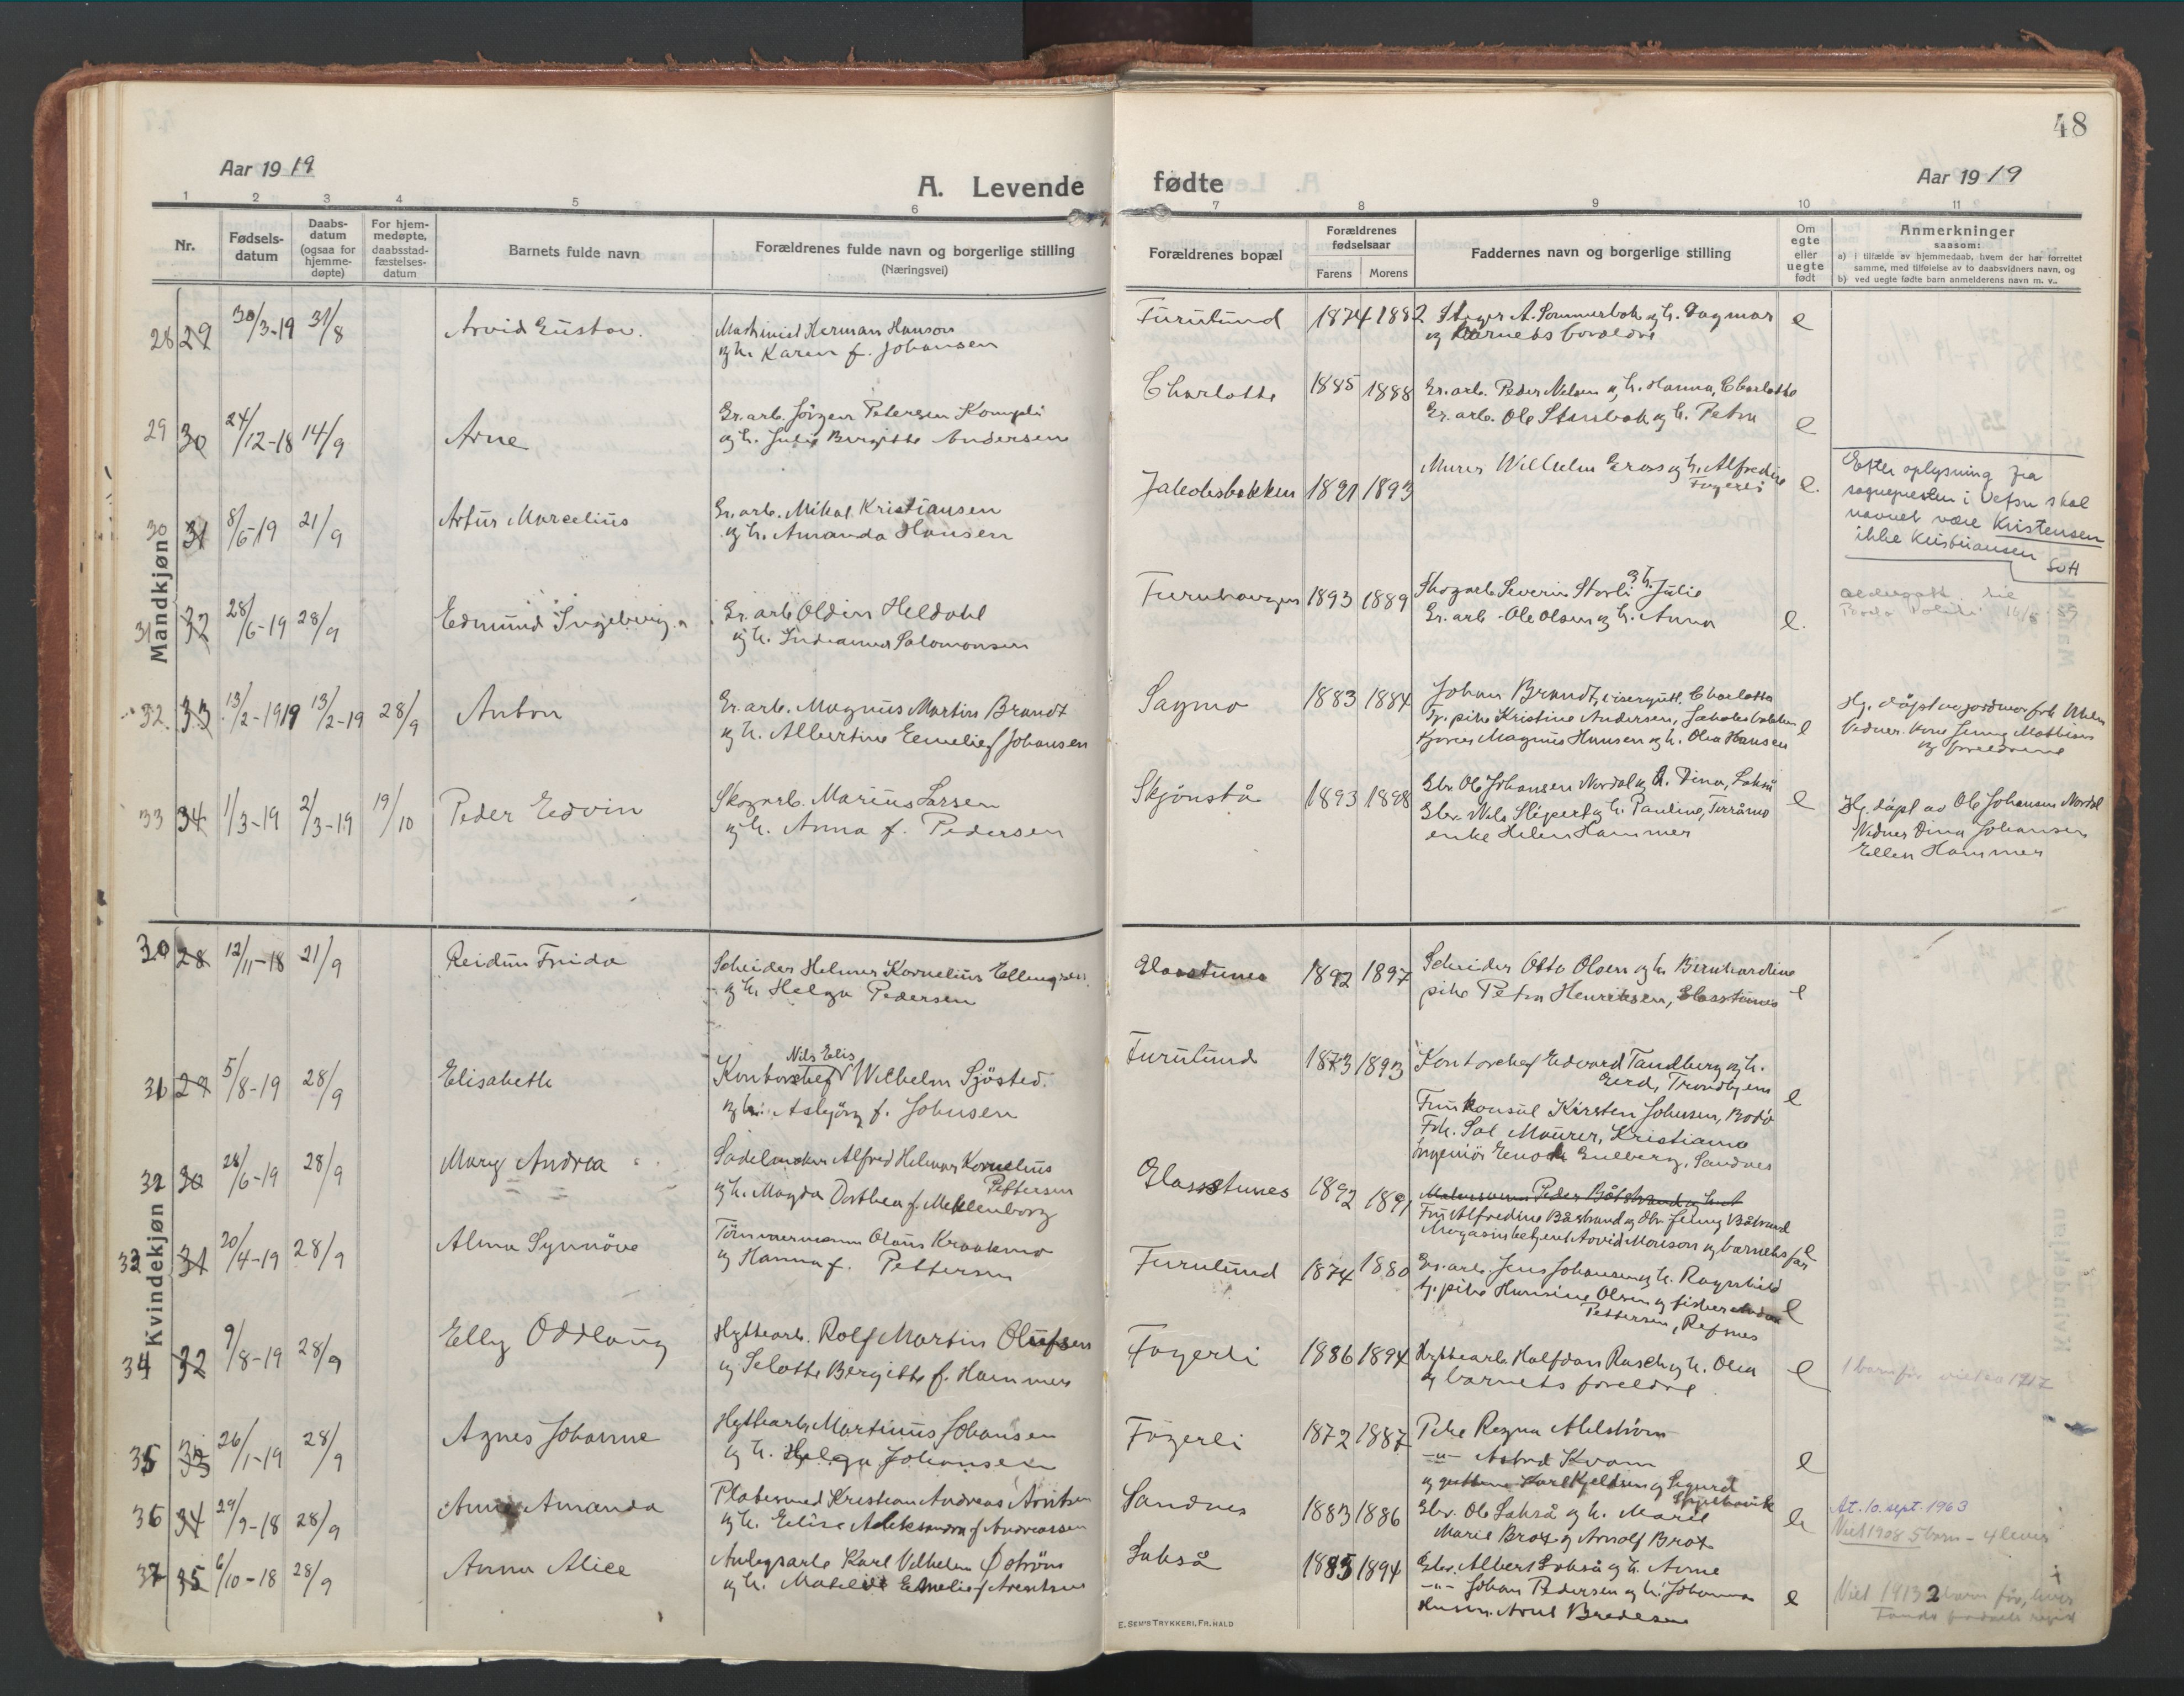 48
Aar 1919
A. Levende fødte
Aar 1919
1 2 3 4 5 6 7 8 9 10 11
Nr.
Fødsels-
datum
Daabs-
datum
(ogsaa for
hjemme-
døpte)
For hjem-
medøpte,
daabsstad-
fæstelses-
datum
Barnets fulde navn
Forældrenes fulde navn og borgerlige stilling
(Næringsvei)
Forældrenes bopæl
Forældrenes
fødselsaar
Farens Morens
Faddernes navn og borgerlige stilling
Om
egte
eller
uegte
født
Anmerkninger
saasom:
a) i tilfælde av hjemmedaab, hvem der har forrettet
samme, med tilføielse av to daabsvidners navn, og
b) ved uegte fødte barn anmelderens navn m. v..
Mandkjøn
28 29 30/3-19 31/8
Arvid Gustav.
Maskinist Herman Hanson
og h. Karen f. Johansen
Furulund
1874 1882
Steger A. Sommerbak og h. Dagmar
og barnets foreldre
e
29 30 24/12-18 14/9
Arne
Gr. arb. Jörgen Petersen Kompli
og h. Julie Birgitte Andersen
Charlotte
1885 1888
Gr. arb. Peder Nilsen og h. Hanna, Charlotte
Gr. arb. Ole Stenbak og h. Petra
e
30 31 8/6-19 21/9
Artur Marcelius
Gr. arb. Mikal Kristiansen
og h. Amanda Hansen
Jakobsbakken
1891 1893
Murer Wilhelm Gros og h. Alfredine
Fagerli
e.
Efter oplysning fra
sognepresten i Vefsn skal
navnet være Kristensen
ikke Kristiansen
31 32 28/6-19 28/9
Edmund Ingebrig
Gr. arb. Oldin Heldahl
og h. Indianna Salomonsen
Furuhaugen
1893 1889
Skogarb. Severin Storli og h. Julie
Gr. arb. Ole Olsen og h. Anna
e.
32. 33 13/2-1919 13/2-19 28/9
Anton
Gr. arb. Magnus Martin Brandt
og h. Albertine Emelie f Johansen
Sagmo
1883 1884
Johan Brandt, visergutt, Charlotta
Tj. pike Kristine Andersen, Jakobsbakken
Kjører Magnus Hansen og h. Olea Hansen
e
Hj. døpt av jordmor frk
Vidner. Kone Jenny Mathisen
og foreldrene
33 34 1/3-19 2/3-19 19/10
Peder Edvin
Skogarb. Marius Larsen
og h. Anna f. Pedersen
Skjønstå
1893 1898
Gbr. Ole Johansen Nordal og h. Dina, Lakså
Gbr. Nils Slipert og h. Pauline, Torråmo
enke Helen Hammer
e
Hj. døpt av Ole Johansen Nordal
Vidner Dina Johansen
Ellen Hammer
Kvindekjøn
30 28 12/11-18 21/9
Reidun Frida
Scheider Helmer Kornelius Ellingsen
og h. Helga Pedersen
Glasstunes
1892 1897
Scheider Otto Olsen og h. Bernhardine
pike Petra Henriksen, Glasstunes
e
31 29 5/8-19 28/9
Elisabeth
Nils Elis
Kontorchef Wilhelm Sjösted.
og h. Asbjörg f. Johnsen
Furulund
1873 1893
Kontorchef Edvard Tandberg og h.
Gerd, Trondhjem
Fru konsul Kirsten Johnsen, Bodö
Frk. Sol Maurer, Kristiania
Ingeniör Enock Gulberg, Sandnes
e
32 30 28/6-19 28/9
Mary Andrea
Sadelmaker Alfred Helmer Kornelius
Pettersen
og h. Magda Dorthea f. Meklenborg
Glasstunes
1892 1891
Fru Alfredine Båtstrand og Jenny Båtstrand
Magasinbetjent Arvid Monson og barnets far
e
33 31 20/4-19 28/9
Alma Synnöve
Tömmermann Olaus Kraakmo
og Hanna f. Pettersen
Furulund
1874 1880
Gr. arb. Jens Johansen og h. Ragnhild
tj. pike Hansine Olsen og fisker
Pettersen, Refsnes
e
34 32 9/8-19 28/9
Elly Oddlaug
Hyttearb. Rolf Martin Olufsen
og Selotte Bergitte f. Hammer
Fagerli
1886 1894
Hyttearb. Halfdan Rasch og h. Olea
og barnets foreldre
e
1 barn før viet 1917
35 33 26/1-19 28/9
Agnes Johanne
Hyttearb. Martinus Johansen
og h. Helga Johansen
Fagerli
1872 1887
Pike Ragna Ahlström
-"- Astrid Kvam
og guttene Karl Kjeldsen og Sigurd
e
36 34 29/9-18 28/9
Anna Amanda
Platesmed Kristian Andreas Arntsen
og h. Elise Aleksandra f Andreassen
Sandnes
1883 1886
Gbr. Ole Lakså og h. Marie
Marie Brox og Arnolf Brox
e
At. 10. sept. 1963
Viet 1908 5 barn - 4 lever
37 35 6/10-18 28/9
Anna Alice
Anlegsarb. Karl Vilhelm Öström
og h. Matilde Emelie f Arentsen
Lakså
1885 1894
Gbr. Albert Lakså og h. Anne
-"- Johan Pedersen og h. Johanna
Arnt Bredesen
e
Viet 1913 2 barn før, lever
E. SEM'S TRYKKERI, FR. HALD